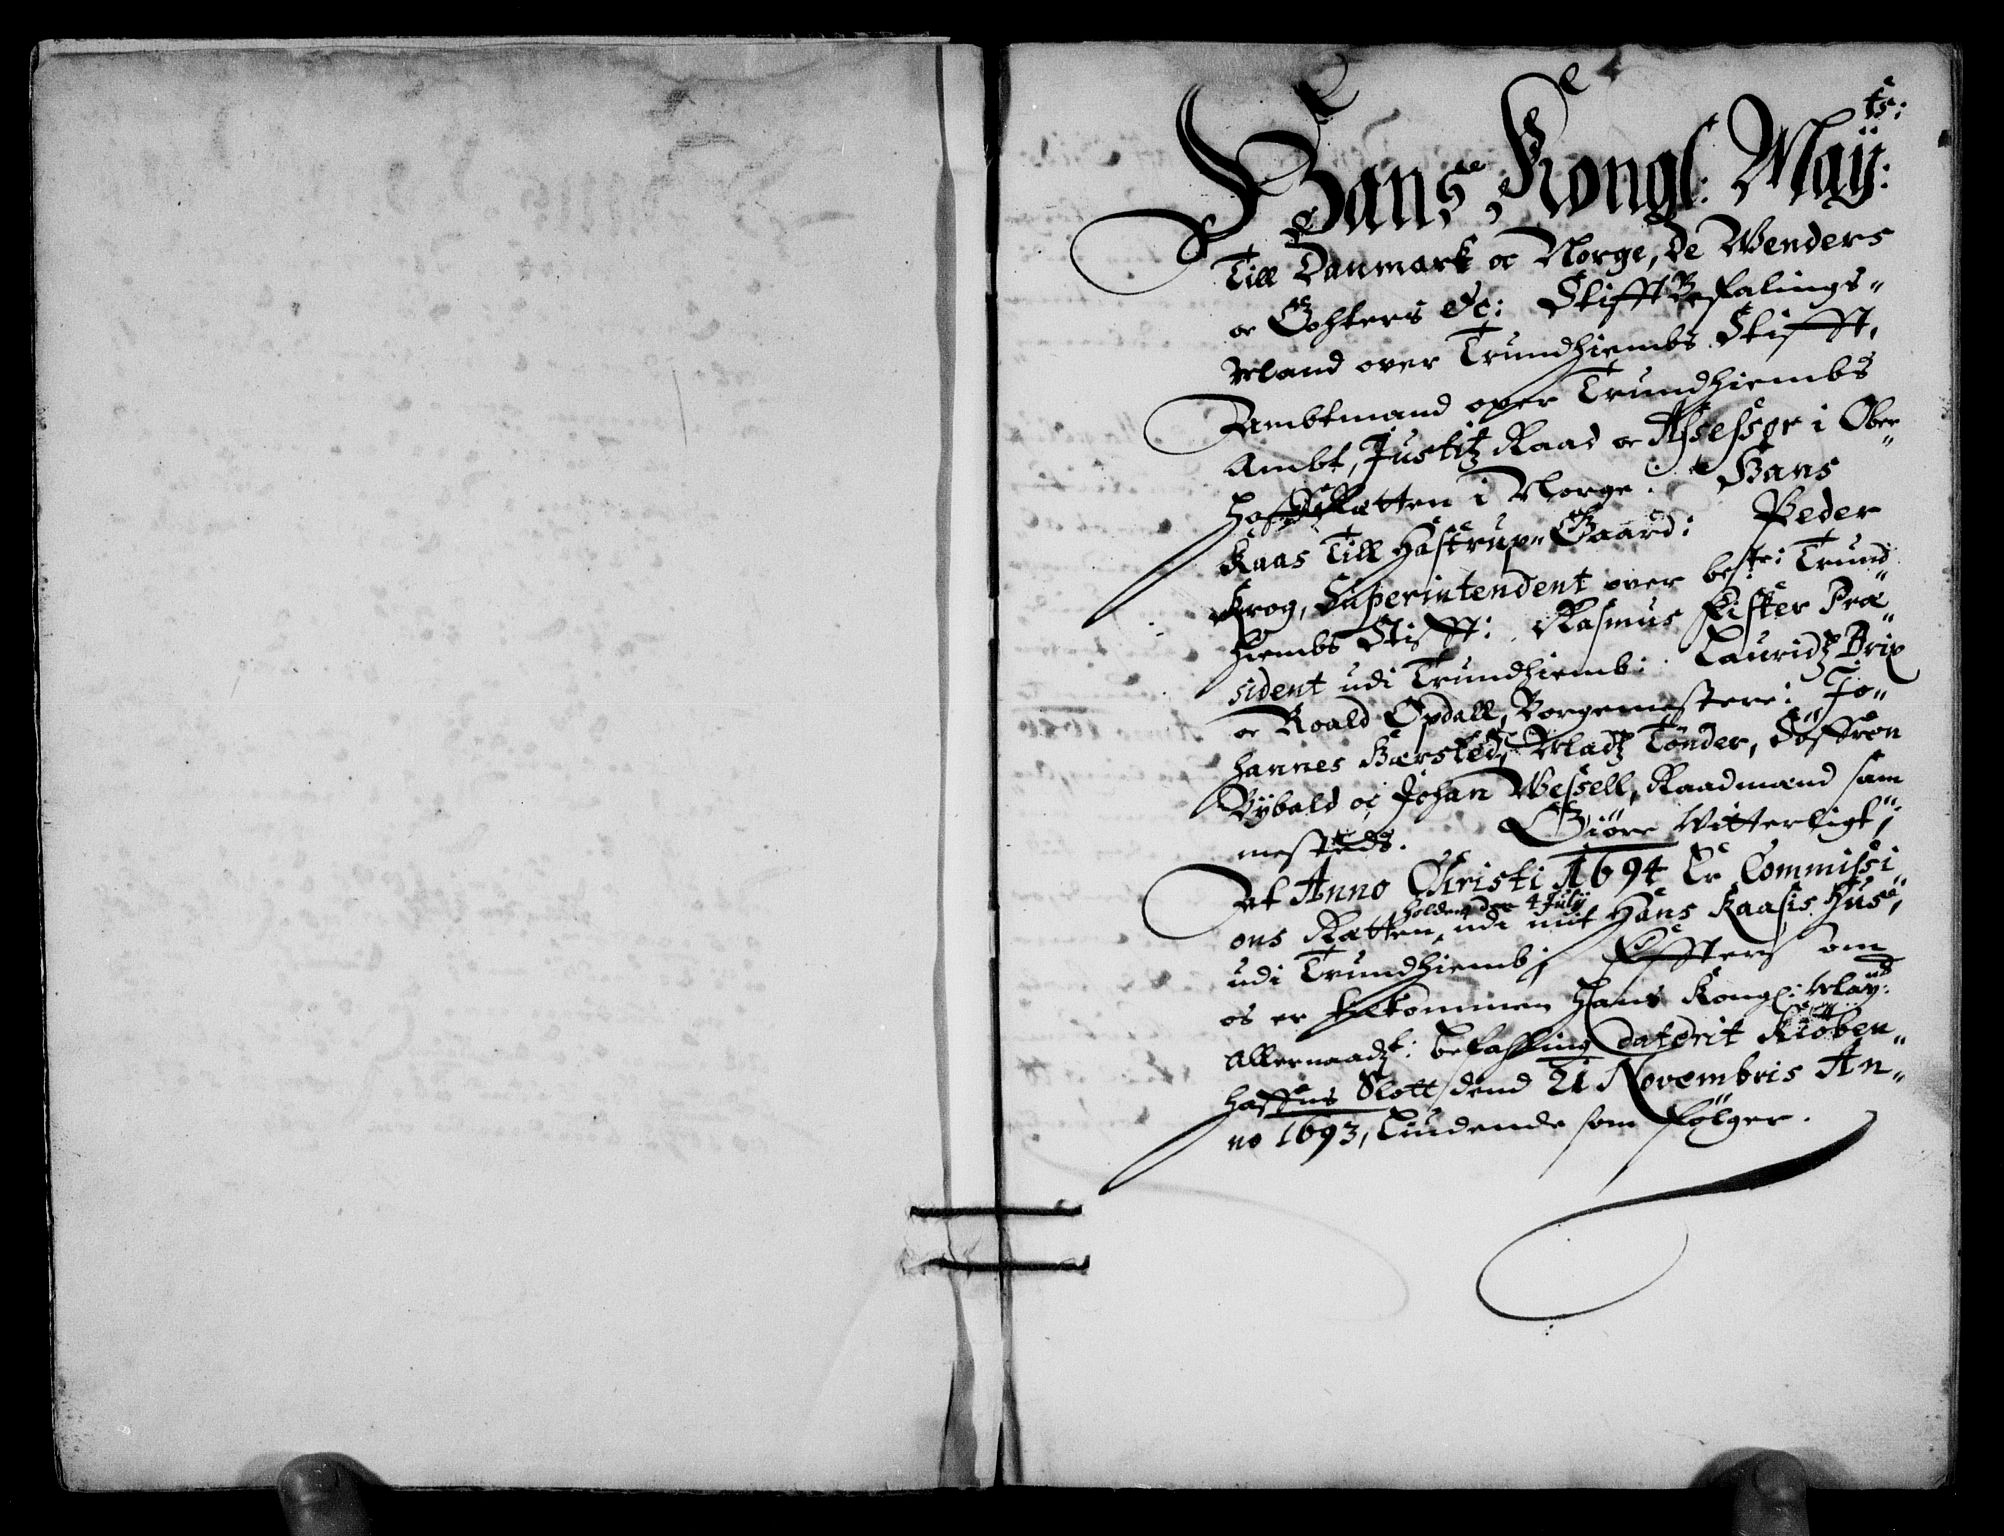 Hans Kongl: May:tz:
Till Danmark oc Norge, de Wenders
oc Gohters Etc: StifftBefalings"
Mand over Trundhiembs Stifft,
Ambtmand over Trundhiembs
Ambt, Justitz Raad oc Assessor i Ober"
HoffRætten i Norge: Hans
Kaas Till Hastrup" Gaard: Peder
Krog, Superintendent over bem:te: Trund"
hiembs Stifft: Rasmus Fisker Præ"
sident udi Trundhiemb: Lauridtz Brix
oc Roald Opdall, Borgemestere: Jo"
hannes Hærsled, Madtz Tønder, Søffren
Bÿbald oc Johan Wessell, Raadmænd sam"
mesteds. Giøre Witterligt,
At Anno Christi 1694 Er Commissi"
holden den 4 Julÿ
ons Rætten, udi mit Hans Kaasis Huus,
udi Trundhiemb; Effters om
os er tilkommen Hans Kongl: Maÿ:ts
Allernaadgst: befalling daterit Kiøben"
haffns Slott dend 21 Novembris An"
no 1693, Liudende som følger.